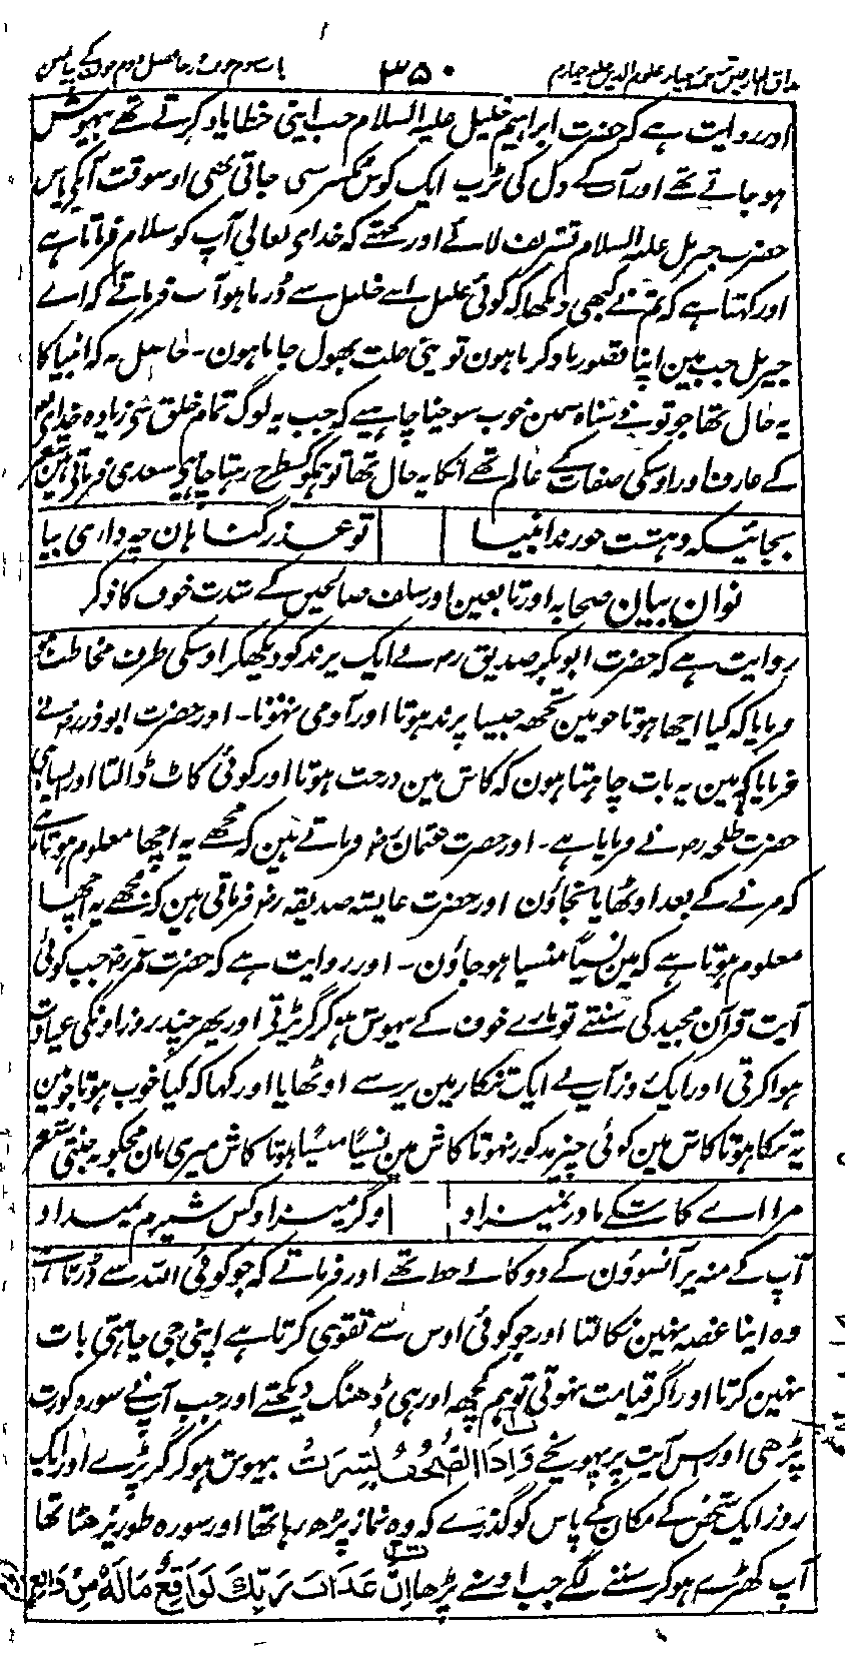 مذاق العارفین ترجمہ احیاء علوم الدین جلد چہارم ۳۵۰ باب سوم خوف ورجا فصل دوم خوف کے بیان میں
اور روایت ہے کہ حضرت ابراہیم خلیل علیہ السلام جب اپنی خطا یاد کرتے تھے بیہوش
ہو جاتے تھے اور آپ کے دل کی تڑپ ایک کوس تک سنی جاتی تھی اوسوقت آپکے پاس
حضرت جبریل علیہ السلام تشریف لاتے اور کہتے کہ خدای تعالی آپ کو سلام فرماتا ہے
اور کہتا ہے کہ تم نے کبھی دیکھا کہ کوئی خلیل اپنے خلیل سے ڈرتا ہو آپ فرماتے کہ اے
جبریل جب مین اپنا قصور یاد کرتا ہون تو اپنی خلت بھول جاتا ہون۔ حاصل یہ کہ انبیا کا
یہ حال تھا جو توبے گناہ تھے سمین خوب سوچنا چاہیے کہ جب یہ لوگ تمام خلق سے زیادہ خدای
کے عارف اور اوسکی صفات کے عالم تھے انکا یہ حال تھا تو ہمکو کسطرح رہنا چاہیے سعدی فرماتی ہین شعر
بجائیکہ دہشت خورند انبیا تو عذر گناہان چہ داری بیا
نوان بیان صحابہ اور تابعین اور سلف صالحین کے شدت خوف کا ذکر
روایت ہے کہ حضرت ابوبکر صدیق رضہ نے ایک پرند کو دیکھکر اوسکی طرف مخاطب ہو
فرمایا کہ کیا اچھا ہوتا جو مین تجھہ جیسا پرند ہوتا اور آدمی نہوتا۔ اور حضرت ابوذر رضہ نے
فرمایا کہ مین یہ بات چاہتا ہون کہ کاش مین درخت ہوتا اور کوئی کاٹ ڈالتا اور ایسا ہی
حضرت طلحہ رضہ نے فرمایا ہے۔ اور حضرت عثمان رضہ فرماتے ہین کہ مجھے یہ اچھا معلوم ہوتا ہے
کہ مرنے کے بعد اوٹھایا نجاؤن اور حضرت عایشہ صدیقہ رضہ فرماتی ہین کہ مجھے یہ اچھا
معلوم ہوتا ہے کہ مین نسیًا منسیا ہو جاؤن۔ اور روایت ہے کہ حضرت عمر رضہ جب کوئی
آیت قرآن مجید کی سنتے تو مارے خوف کے بیہوش ہو کر گر پڑتے اور پھر چند روز اونکی عیادت
ہوا کرتی اور ایک روز آپ نے ایک تنکا زمین پر سے اوٹھایا اور کہا کہ کیا خوب ہوتا جو مین
یہ تنکا ہوتا کاش مین کوئی چیز مذکور نہوتا کاش مین نسیًا منسیًا ہوتا کاش میری مان مجکو نہ جنتی شعر
مرا اے کاشکے مادر نمیزاد وگر میزاد کس شیرم نمیداد
آپ کے منہ پر آنسوؤن کے دو کالے خط تھے اور فرماتے کہ جو کوئی اللہ سے ڈرتا ہے
وہ اپنا غصہ نہین نکالتا اور جو کوئی اوس سے تقوی کرتا ہے اپنی جی چاہتی بات
نہین کرتا اور اگر قیامت نہوتی تو ہم کچھہ اور ہی ڈھنگ دیکھتے اور جب آپ نے سورہ کورت
پڑھی اور اس آیت پر پہونچے وَاِذَا الصُّحُفُ نُشِرَتْ بیہوش ہو کر گر پڑے اور ایک
روز ایک شخص کے مکان کے پاس کو گذرے کہ وہ نماز پڑھ رہا تھا اور سورہ طور پڑھتا تھا
آپ کھڑے ہو کر سننے لگے جب اوسنے پڑھا اِنَّ عَذَابَ رَبِّكَ لَوَاقِعٌ مَالَهُ مِنْ دَافِعٍ